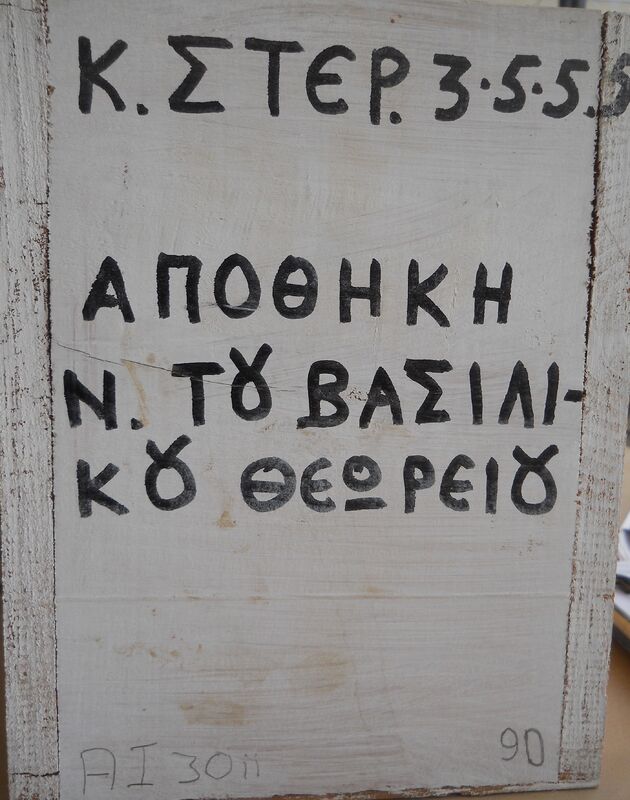 Κ. ΣΤΕΡ. 3·5·5.5
ΑΠΟΘΗΚΗ
Ν. ΤȢ ΒΑΣΙΛΙ-
ΚȢ ΘΕΩΡΕΙȢ
90